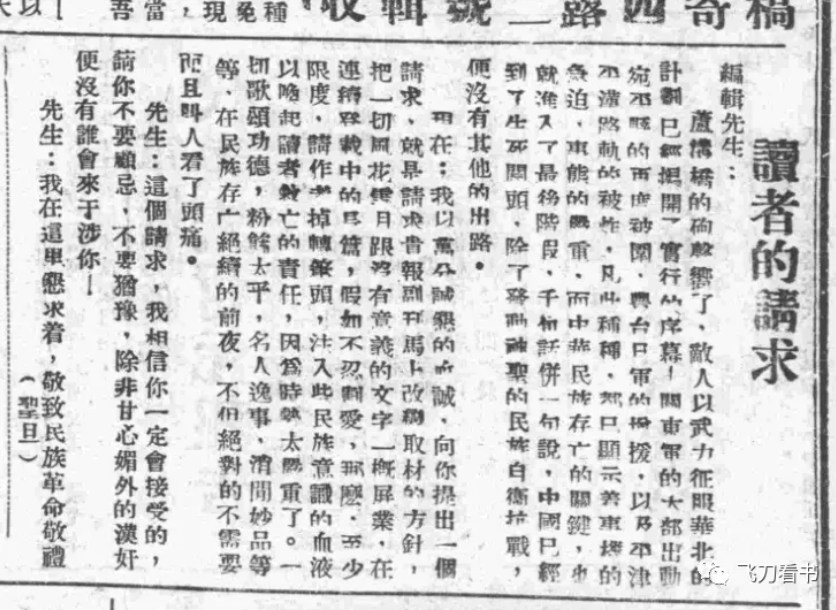 稿寄
號輯收
讀者的請求
編輯先生：
蘆溝橋的砲聲響了、敵人以武力征服華北的
計劃已經揭開了實行的序幕！關東軍的大部出動
宛平縣的再度被圍，豐台日軍的增援，以及平津
平漢路軌的被炸，凡此種種，都已顯示着事機的
急迫，事態的嚴重，而中華民族存亡的關鍵，也
就進入了最後階段，千句話併一句說，中國已經
到了生死關頭，除了發動神聖的民族自衛抗戰，
便沒有其他的出路。
現在：我以萬分誠懇的血誠、向你提出一個
請求、就是請求貴報副刊馬上改變取材的方針，
把一切風花雪月跟沒有意義的文字一概屏棄，在
連續登載中的長篇，假如不忍割愛，那麼，至少
限度，請作者掉轉筆頭，注入些民族意識的血液
以喚起讀者救亡的責任，因為時勢太嚴重了。一
切歌頌功德，粉飾太平，名人逸事，清閒妙品等
等、在民族存亡絕續的前夜，不但絕對的不需要
而且叫人看了頭痛。
先生：這個請求，我相信你一定會接受的，
請你不要顧忌，不要猶豫，除非甘心媚外的漢奸
便沒有誰會來干涉你！
先生：我在這里懇求着，敬致民族革命敬禮
（聖旦）
飞刀看书